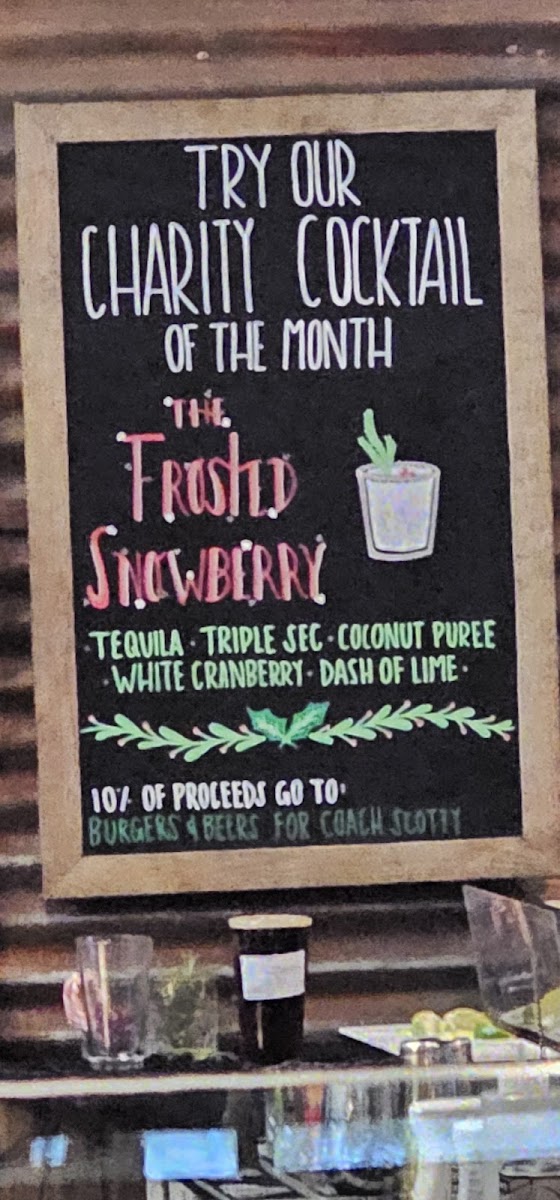 TRY OUR
CHARITY COCKTAIL
OF THE MONTH
THE
FROSTED
SNOWBERRY
· TEQUILA · TRIPLE SEC · COCONUT PUREE
· WHITE CRANBERRY · DASH OF LIME ·
10% OF PROCEEDS GO TO:
BURGERS & BEERS FOR COACH SCOTTY